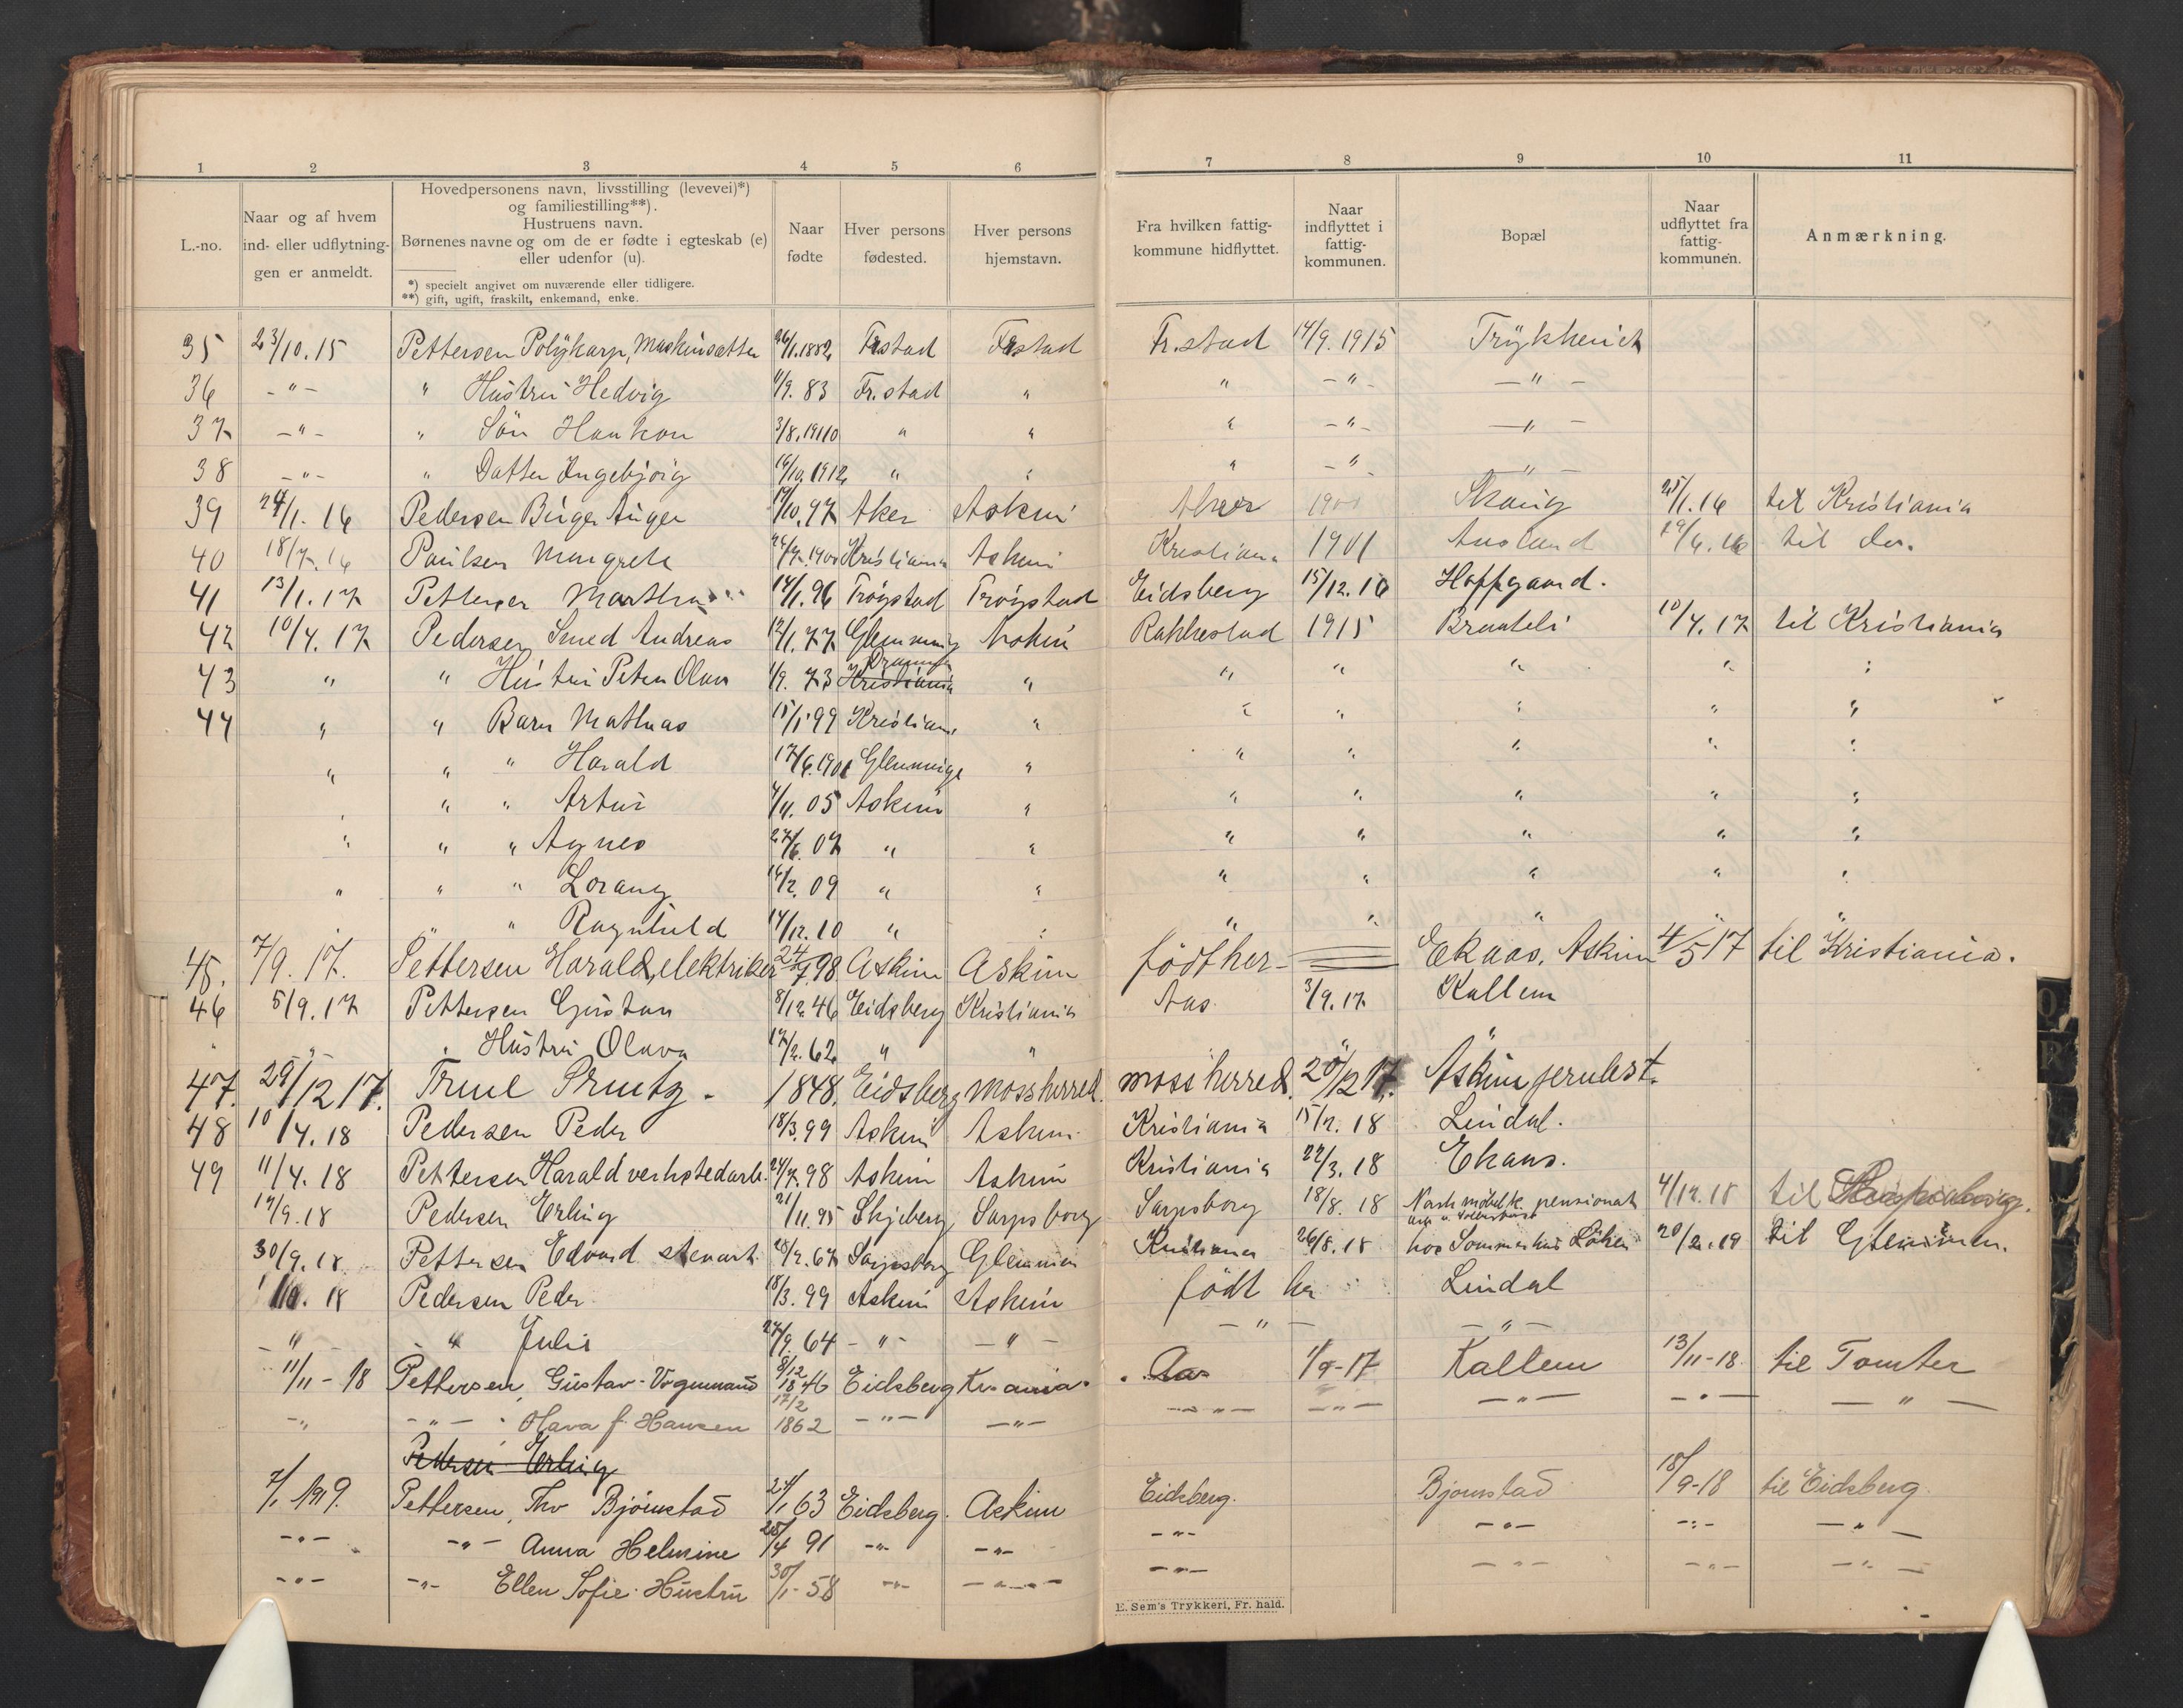 1 2 3 4 5 6 7 8 9 10 11
L.-no.
Naar og af hvem
ind- eller udflytning-
gen er anmeldt.
Hovedpersonens navn, livsstilling (levevei)*)
og familiestilling**).
Hustruens navn.
Børnenes navne og om de er fødte i egteskab (e)
eller udenfor (u).
*) specielt angivet om nuværende eller tidligere.
**) gift, ugift, fraskilt, enkemand, enke.
Naar
fødte
Hver persons
fødested.
Hver persons
hjemstavn.
Fra hvilken fattig-
kommune hidflyttet.
Naar
indflyttet i
fattig-
kommunen.
Bopæl
Naar
udflyttet fra
fattig-
kommunen.
Anmærkning.
35 23/10.15 Pettersen Polykarp, Maskinsætter 26/1.1882 Fr.stad Fr.stad Fr.stad 14/9.1915 Trykkeriet
36 -"- " Hustru Hedvig 11/9.83 Fr.stad " " -"- -"-
37 -"- " Sön Haakon 3/8.1910 " " " -"- -"-
38 -"- " Datter Ingebjörg 16/10.1912 " " " -"- -"-
39 24/1.16 Pedersen Birger Aüger 19/10.97 Aker Askim Aker 1900 Skoüg 25/1.16 til Kristiania
40 18/7.16 Paulsen Margrete 1900 Kristiania Askim Kristiania 1901 Ausland 29/6.16 til do.
41 13/1.17 Pettersen Martha 14/1.96 Tröystad Tröystad Eidsberg 15/12.16 Hoffgaard.
42 10/4.17 Pedersen Smed Andreas 12/1.77 Glemminge Askim Rakkestad 1915 Brааteli 10/4.17 til Kristiania
43 " " Hüstru Petra Olava 1/9.73 Drammen Kristiania " " " " " "
44 " " Barn Mathias 15/1.99 Kristiania " " " " " "
" " " Harald 17/6.1901 Glemminge " " " " "
" " " Artur 4/11.05 Askim " " " " " "
" " " Agnes 27/6.07 " " " " " " "
" " " Lorang 16/2.09 " " " " " " "
" " Ragnhild 14/12.10 " " " " " " "
45. 7/9.17. Pettersen Harald, elektriker 24/7.98 Askim Askim född her - Ekaas, Askim 4/5 17 til Kristiania.
46 5/9.17 Pettersen Güstav 8/12.46 Eidsberg Kristiania Aas. 3/9.17 Kallem
" " " Hüstru Olava 17/2.62 " " " "
47. 29/12 17. 1848. Eidsberg Mossherred. Mossherred. 20/12 17. Askim jernbst.
48 10/4.18 Pedersen Peder 18/3.99 Askim Askim Kristiania 15/2.18 Lindal.
49 11/4.18 Pettersen Harald verkstedarb. 24/7.98 Askim Askim Kristiania 22/3.18 Ekaas.
14/9.18 Pedersen Erling 21/11.95 Skjeberg Sarpsborg Sarpsborg 18/8.18 pensionat 4/12.18 til
30/9.18 Pettersen Edvard stenarb. 28/2.67 Sarpsborg Glemmen Kristiania 26/8.18 hos 20/2.19 til Glemmen.
1/10.18 Pedersen Peder 18/3.99 Askim Askim födt her Lindal
-"- " Julie 27/9.64 -"- -"- -"- -"-
11/11-18 Pettersen, Güstav- Vognmand 8/12 1846 Eidsberg Kr.ania. Aas 1/9-17 Kallem 13/11-18 til Tomter
-"- -"- Olava f. Hansen 17/2 1862 -"- -"- -"- -"- -"- -"- -"-
Pedersen Erling
7/1 1919. Pettersen, Thv Björnstad 24/1 63 Eidsberg. Askim Eidsberg. Björnstad 18/9-18 til Eidsberg
-"- -"- Anna Helmine 28/4 91 -"- -"- -"- -"- -"- -"-
-"- -"- Ellen Sofie - Hüstru 30/1-58 -"- -"- -"- -"- -"- -"-
E. Sem's Trykkeri, Fr. hald.